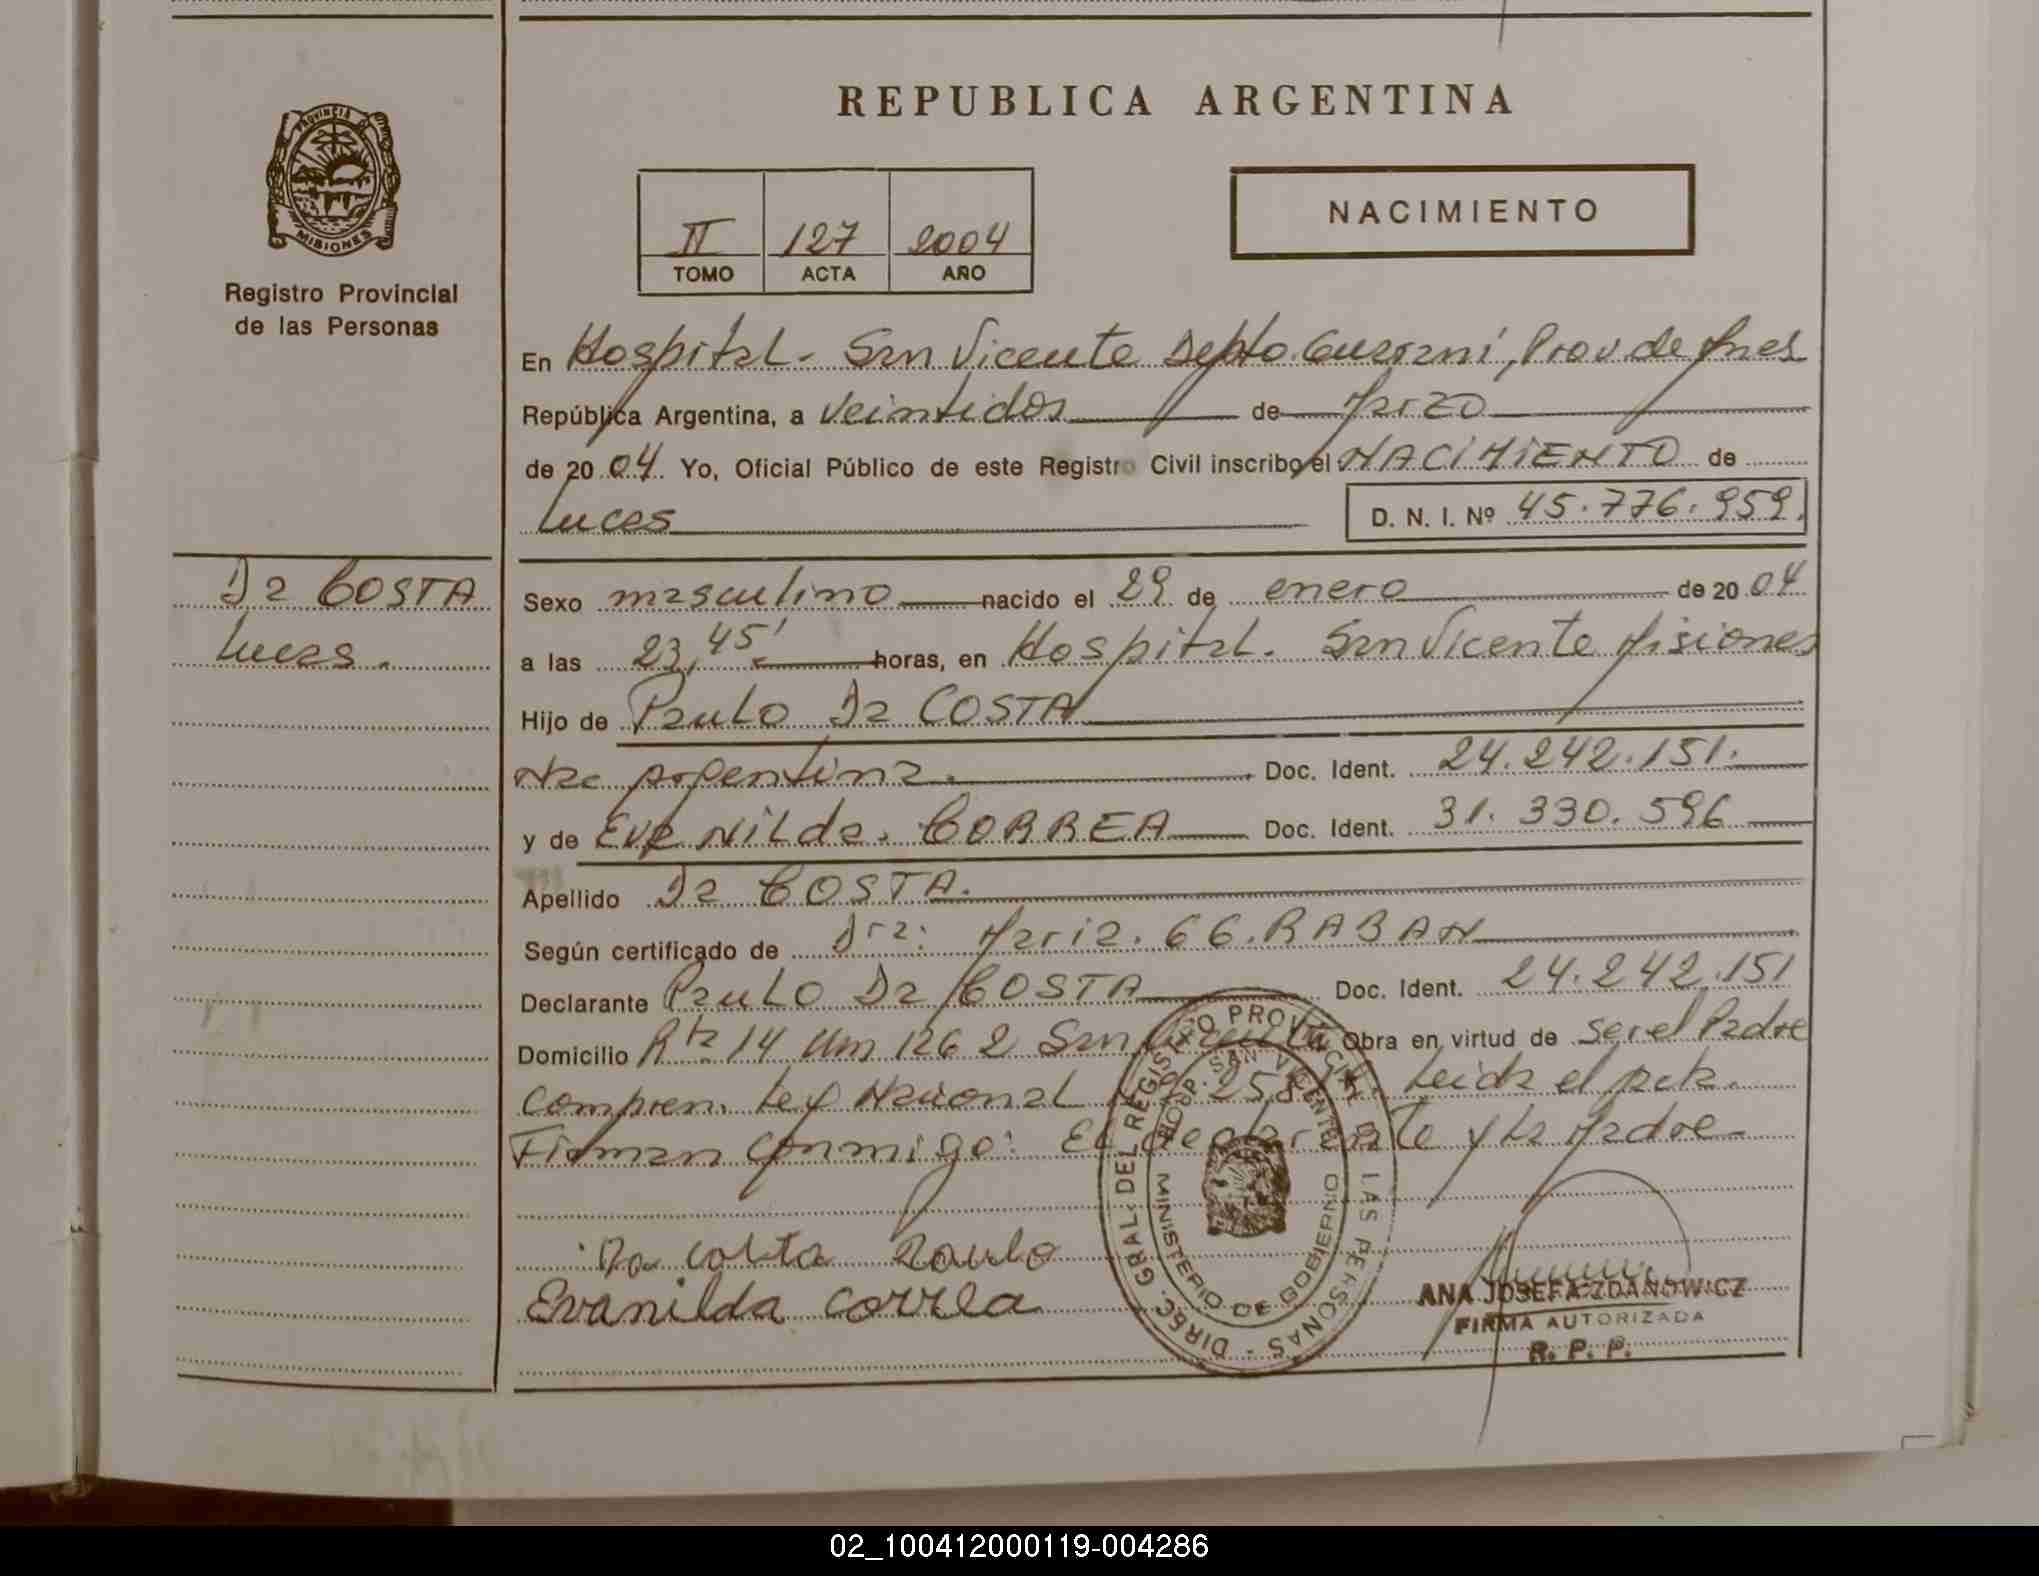 REPUBLICA ARGENTINA
PROVINCIA DE
MISIONES
Registro Provincial
de las Personas
II 127 2004
TOMO ACTA AÑO
NACIMIENTO
En Hospital. San Vicente Depto. Guaraní, Prov. de Mnes
República Argentina, a veintidos de Marzo
de 20 04 Yo, Oficial Público de este Registro Civil inscribo el NACIMIENTO de
Lucas
D. N. I. Nº 45.776.959.
Da COSTA
Lucas.
Sexo masculino nacido el 29 de enero de 20 04
a las 23,45' horas, en Hospital. San Vicente Misiones
Hijo de PauLo Da COSTA
Nac Argentina. Doc. Ident. 24.242.151.
y de Eva NiLda. CORREA Doc. Ident. 31.330.596
Apellido Da COSTA.
Según certificado de Dra: Maria. GG. RABAN
Declarante PauLo Da COSTA Doc. Ident. 24.242.151
Domicilio Rta 14 Km 1262 San Vicente Obra en virtud de ser el Padre
Compren. Ley Nacional Leida el acta.
Firman Conmigo: El declarante y La Madre
Da Costa Paulo
Evanilda Correa
DIREC. GRAL. DEL REGISTRO PROVINCIAL DE LAS PERSONAS -
HOSP. SAN VICENTE
MINISTERIO DE GOBIERNO
ANA JOSEFA ZDANOWICZ
FIRMA AUTORIZADA
R. P. P.
02_100412000119-004286